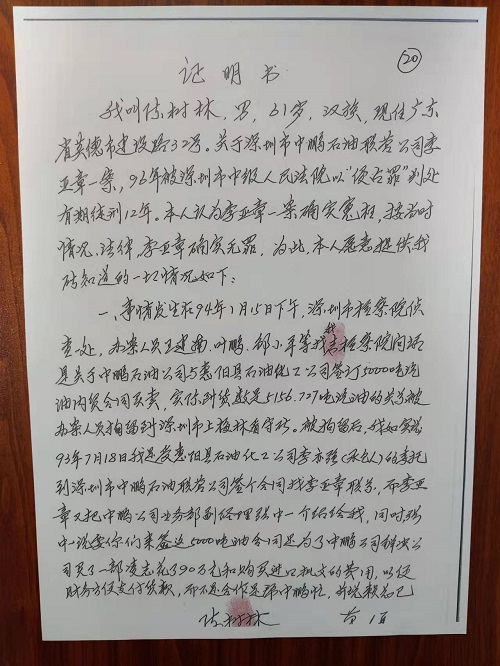 20
证明书
我叫陈树林，男，61岁，汉族，现住广东
省英德市建设路32号。关于深圳市中鹏石油联营公司李
亚章一案，96年被深圳市中级人民法院以“侵占罪”判处
有期徒刑12年。本人认为李亚章一案确实冤枉，按当时
情况、法律，李亚章确实无罪，为此，本人愿意提供我
所知道的一切情况如下：
一、事情发生在94年1月15日下午，深圳市检察院侦
查处，办案人员王建南、叶鹏、邹小平等找我去检察院问话
是关于中鹏石油公司与惠阳县石油化工公司签订5000吨汽
油内贸合同买卖，实际到货数是5156.727吨汽油的关系被
办案人员拘留到深圳市上梅林看守所。被拘留后，我如实答
93年7月18日我是受惠阳县石油化工公司李亦强(承包人)的委托
到深圳市中鹏石油联营公司签个合同找李亚章联系，而李亚
章又把中鹏公司业务部副经理张中一介绍给我，同时张
中一说你们来签这5000吨油合同是为了中鹏公司
司买了一部凌志花了90万元和购买进口批文的费用，以便
财务方便支付货款，而不是合作是
陈树林 第1页